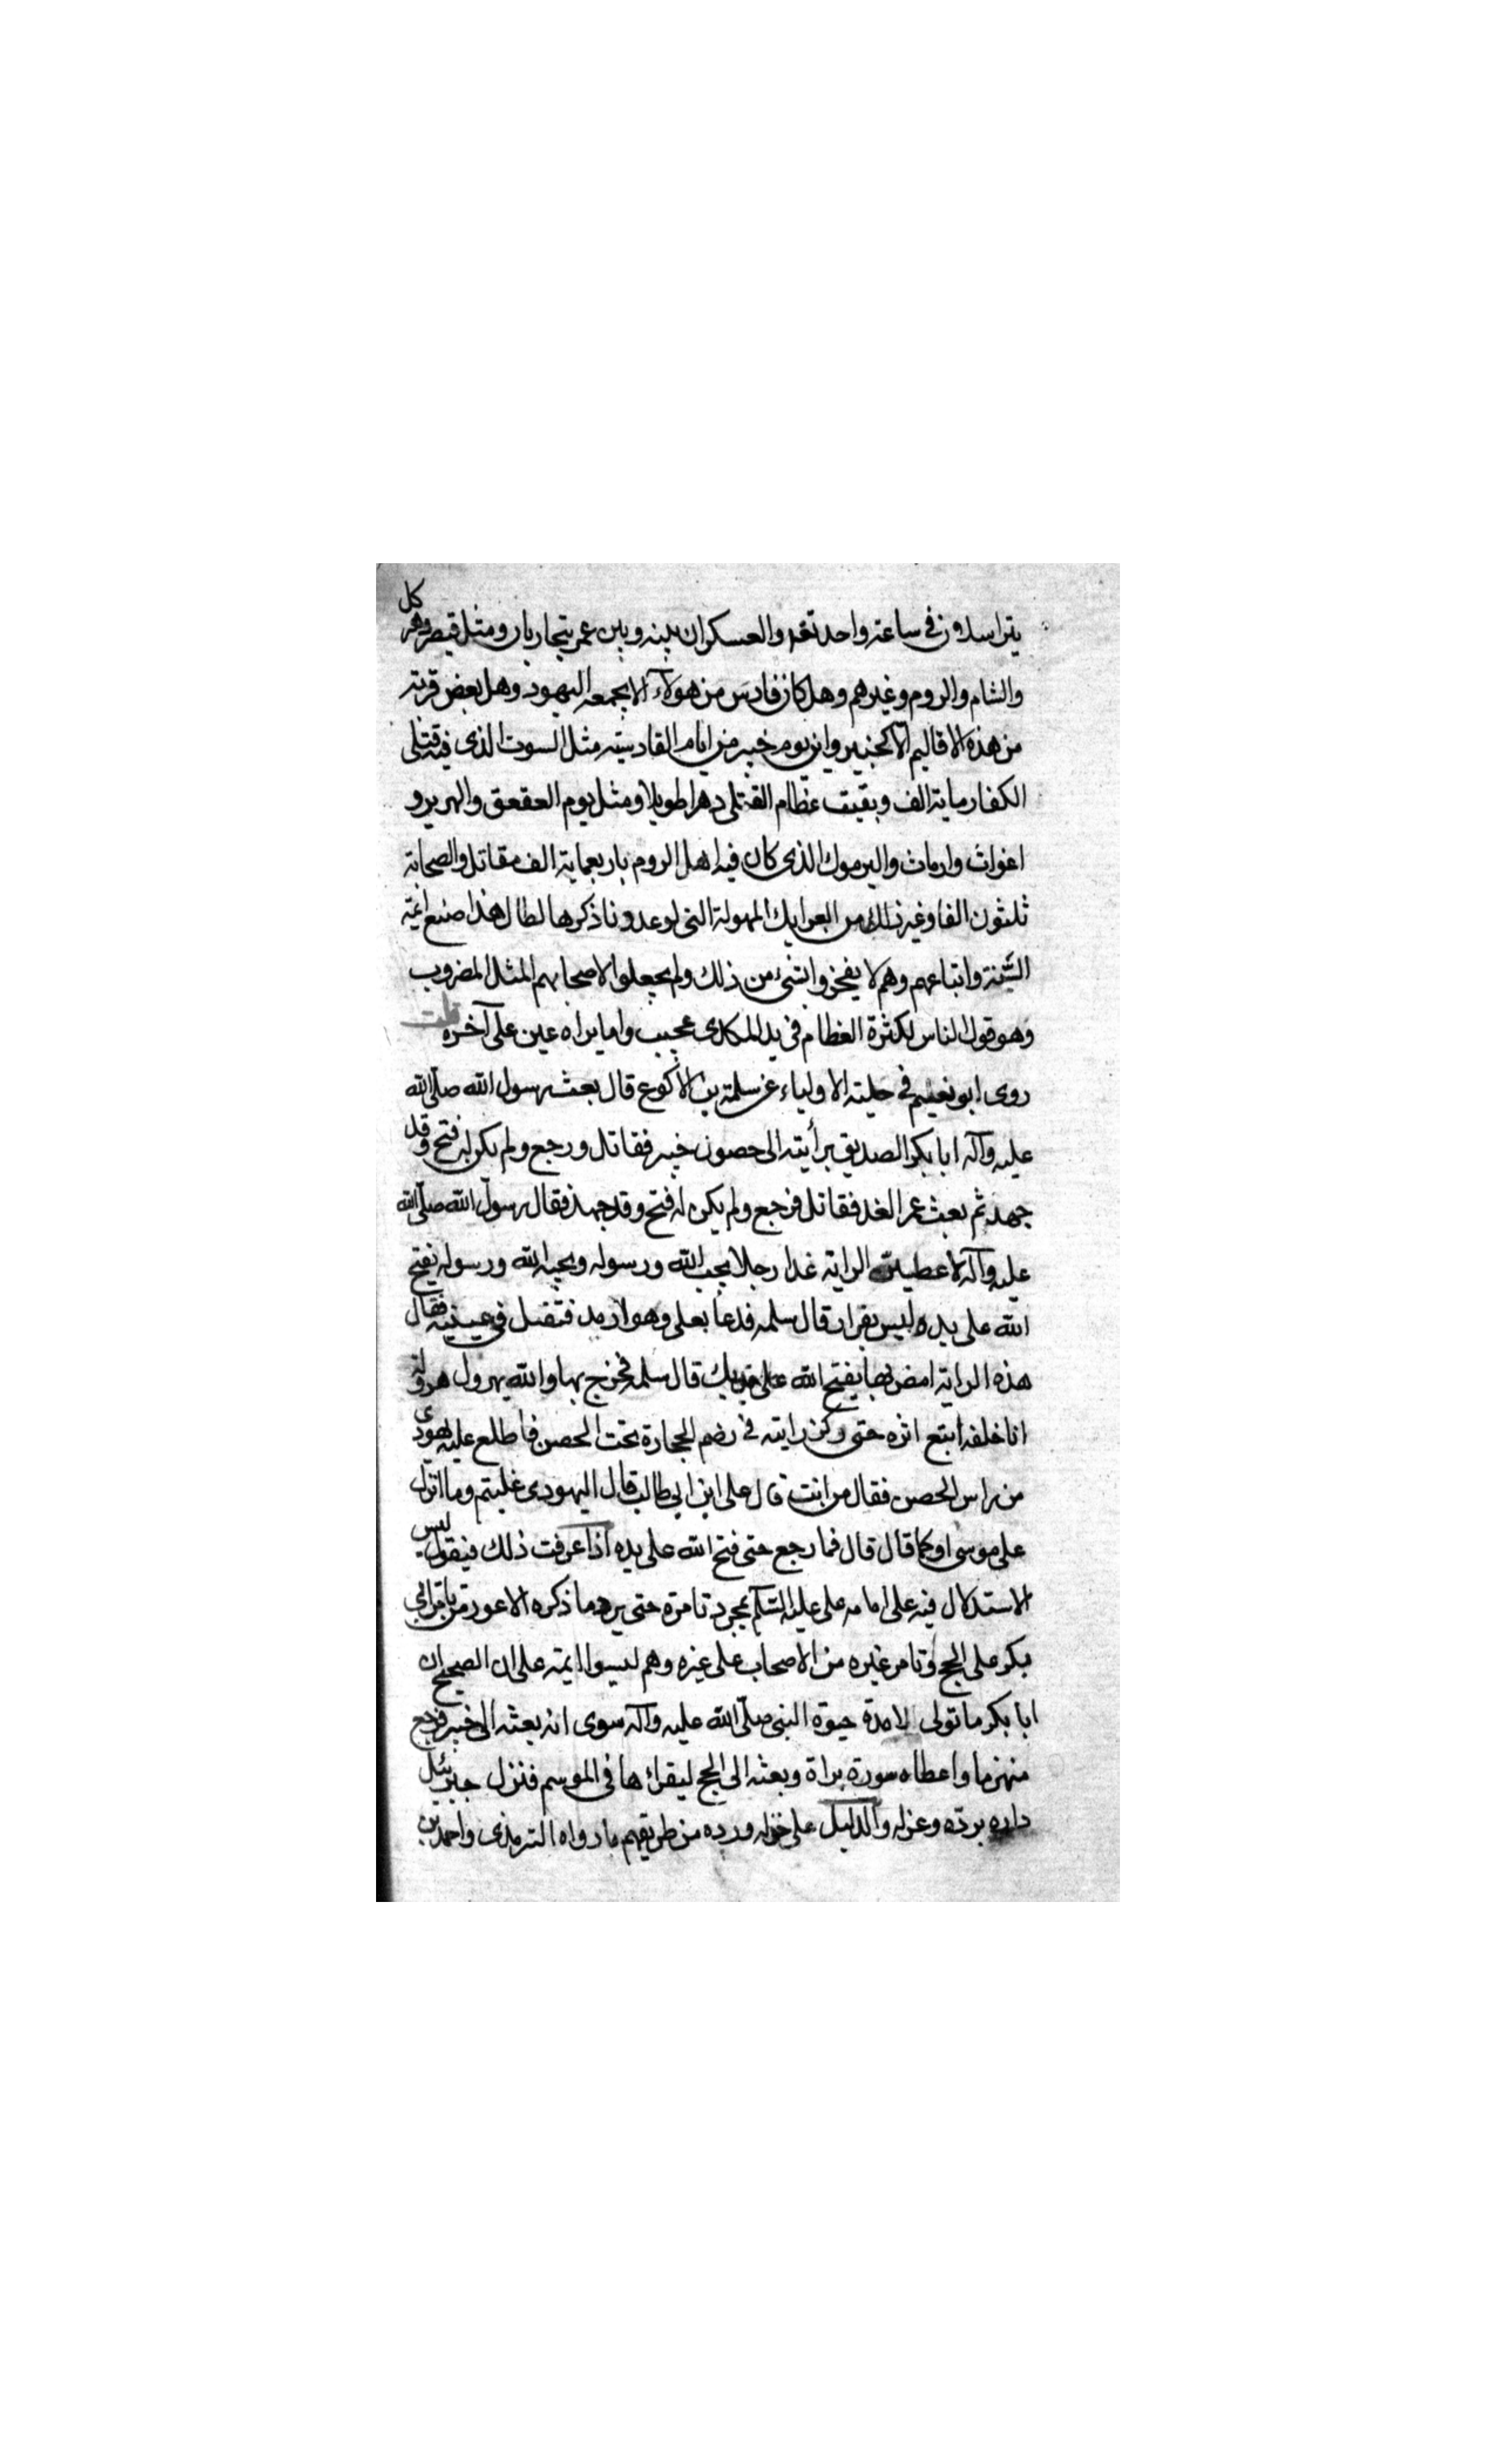 يتراسلون في ساعته واحد تغد والعسكران بينه وبين عمر يتحاربان ومثل قيصر وهرقل
والشام والروم وغيرهم وهل كان فارس من هولاء الا بجمعه اليهود وهل بعض قرية
من هذه الاقاليم الا كخيبر واين يوم خيبر من ايام القادسيته مثل السوت الذى فيه قتلى
الكفار ماية الف وبقيت عظام القتلى دهرا طويلا ومثل يوم العقعق والهرير و
اغواث وارماث واليرموك الذى كان فيه اهل الروم باربعماية الف مقاتل والصحابة
ثلثون الفا وغير ذلك من المهولة التى لو عدونا ذكرها لطال هذا صنيع ائمة
السّنة واتباعهم وهم لا يفخروا بشئ من ذلك ولم يجعلوا لاصحابهم المثل المضروب
وهو قول الناس لكثرة العظام فى يد المكدى عجيب واما يراه عين على آخره قلت
روى ابو نعيم في حلية الاولياء عن سلمة بن الاكوع قال بعث رسول الله صلّى الله
عليه وآله ابا بكر الصديق برأيته الى حصون خيبر فقاتل ورجع ولم يكن له فتح وقد
جهد ثم بعث عمر الغد فقاتل فرجع ولم يكن له فتح وقد جهد فقال رسول الله صلّى الله
عليه وآله لاعطينّ الراية غدا رجلا يحب الله ورسوله ويحبه الله ورسوله يفتح
الله على يده ليس بفرار قال سلمه فدعا بعلى وهو ارمد فتفل في عينيه فقال
هذه الراية امض بها يفتح الله على يديك قال سلمه فخرج بها والله يهرول هرولة
انا خلفه اتبع اثره حتى ركز رايته في رضم الحجارة تحت الحصن فاطلع عليه يهودى
من راس الحصن فقال من انت قال على ابن ابي طالب قال اليهودى غلبتم وما انزل
على موسى او كما قال قال فما رجع حتى فتح الله على يده اذا عرفت ذلك فنقول ليس
الاستدلال فيه على امامه على عليه السّلام بمجرد تامره حتى يرد ما ذكره الاعور من تامر ابي
بكر على الحج وتامر غيره من الاصحاب على غيره وهم ليسوا ايمة على ان الصحيح ان
ابا بكر ما تولى لامدة حيوة النبى صلّى الله عليه وآله سوى انه بعثه الى خيبر فرجع
منهزما واعطاه سورة براة وبعثه الى الحج ليقراها فى الموسم فنزل جبرئيل
برده وعزله والدليل على عزله ورده من طريقهم ما رواه الترمذى واحمد بن